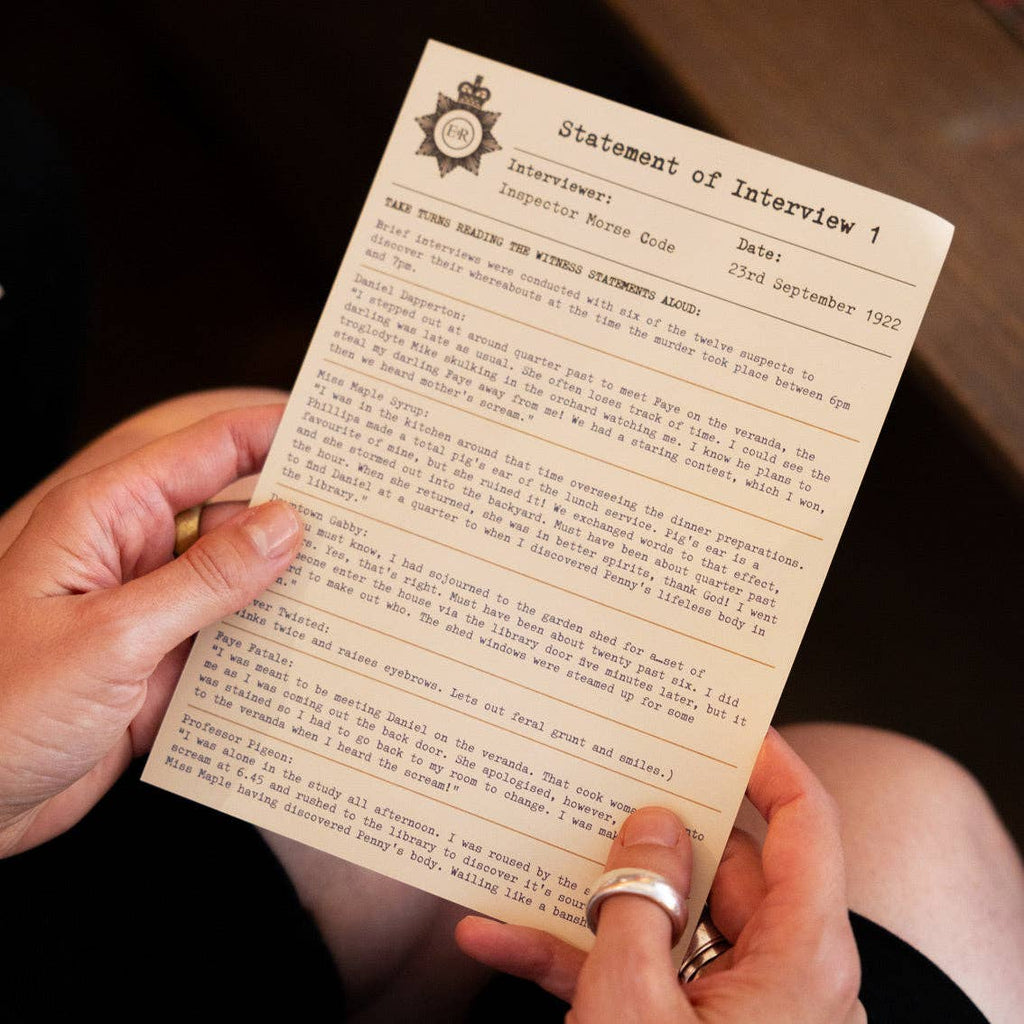 E R
Statement of Interview 1
Interviewer:
Inspector Morse Code
Date:
23rd September 1922
TAKE TURNS READING THE WITNESS STATEMENTS ALOUD:
Brief interviews were conducted with six of the twelve suspects to
discover their whereabouts at the time the murder took place between 6pm
and 7pm.
Daniel Dapperton:
"I stepped out at around quarter past to meet Faye on the veranda, the
darling was late as usual. She often loses track of time. I could see the
troglodyte Mike skulking in the orchard watching me. I know he plans to
steal my darling Faye away from me! We had a staring contest, which I won,
then we heard mother's scream."
Miss Maple Syrup:
"I was in the kitchen around that time overseeing the dinner preparations.
Phillipa made a total pig's ear of the lunch service. Pig's ear is a
favourite of mine, but she ruined it! We exchanged words to that effect,
and she stormed out into the backyard. Must have been about quarter past
the hour. When she returned, she was in better spirits, thank God! I went
to find Daniel at a quarter to when I discovered Penny's lifeless body in
the library."
town Gabby:
u must know, I had sojourned to the garden shed for a…set of
s. Yes, that's right. Must have been about twenty past six. I did
eone enter the house via the library door five minutes later, but it
rd to make out who. The shed windows were steamed up for some
n."
ver Twisted:
inks twice and raises eyebrows. Lets out feral grunt and smiles.)
Faye Fatale:
"I was meant to be meeting Daniel on the veranda. That cook woma
me as I was coming out the back door. She apologised, however, nto
was stained so I had to go back to my room to change. I was mak
to the veranda when I heard the scream!"
Professor Pigeon:
"I was alone in the study all afternoon. I was roused by the s
scream at 6.45 and rushed to the library to discover it's sour
Miss Maple having discovered Penny's body. Wailing like a bansh